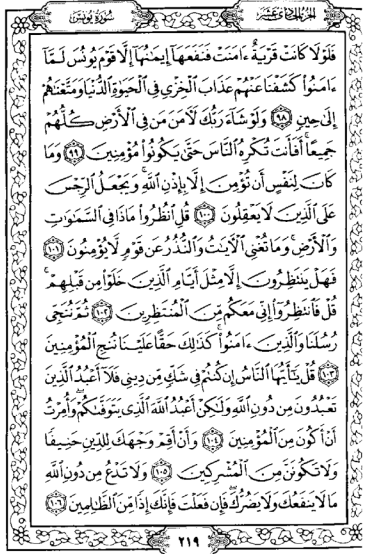 الجُزءُ الحَادِي عَشَرَ
سُورَةُ يُونُسَ
فَلَوْلَا كَانَتْ قَرْيَةٌ ءَامَنَتْ فَنَفَعَهَآ إِيمَٰنُهَآ إِلَّا قَوْمَ يُونُسَ لَمَّآ
ءَامَنُوا۟ كَشَفْنَا عَنْهُمْ عَذَابَ ٱلْخِزْىِ فِى ٱلْحَيَوٰةِ ٱلدُّنْيَا وَمَتَّعْنَٰهُمْ
إِلَىٰ حِينٍ ٩٨ وَلَوْ شَآءَ رَبُّكَ لَءَامَنَ مَن فِى ٱلْأَرْضِ كُلُّهُمْ
جَمِيعًا أَفَأَنتَ تُكْرِهُ ٱلنَّاسَ حَتَّىٰ يَكُونُوا۟ مُؤْمِنِينَ ٩٩ وَمَا
كَانَ لِنَفْسٍ أَن تُؤْمِنَ إِلَّا بِإِذْنِ ٱللَّهِ وَيَجْعَلُ ٱلرِّجْسَ
عَلَى ٱلَّذِينَ لَا يَعْقِلُونَ ١٠٠ قُلِ ٱنظُرُوا۟ مَاذَا فِى ٱلسَّمَٰوَٰتِ
وَٱلْأَرْضِ وَمَا تُغْنِى ٱلْءَايَٰتُ وَٱلنُّذُرُ عَن قَوْمٍ لَّا يُؤْمِنُونَ ١٠١
فَهَلْ يَنتَظِرُونَ إِلَّا مِثْلَ أَيَّامِ ٱلَّذِينَ خَلَوْا۟ مِن قَبْلِهِمْ
قُلْ فَٱنتَظِرُوٓا۟ إِنِّى مَعَكُم مِّنَ ٱلْمُنتَظِرِينَ ١٠٢ ثُمَّ نُنَجِّى
رُسُلَنَا وَٱلَّذِينَ ءَامَنُوا۟ كَذَٰلِكَ حَقًّا عَلَيْنَا نُنجِ ٱلْمُؤْمِنِينَ
١٠٣ قُلْ يَٰٓأَيُّهَا ٱلنَّاسُ إِن كُنتُمْ فِى شَكٍّ مِّن دِينِى فَلَآ أَعْبُدُ ٱلَّذِينَ
تَعْبُدُونَ مِن دُونِ ٱللَّهِ وَلَٰكِنْ أَعْبُدُ ٱللَّهَ ٱلَّذِى يَتَوَفَّىٰكُمْ وَأُمِرْتُ
أَنْ أَكُونَ مِنَ ٱلْمُؤْمِنِينَ ١٠٤ وَأَنْ أَقِمْ وَجْهَكَ لِلدِّينِ حَنِيفًا
وَلَا تَكُونَنَّ مِنَ ٱلْمُشْرِكِينَ ١٠٥ وَلَا تَدْعُ مِن دُونِ ٱللَّهِ
مَا لَا يَنفَعُكَ وَلَا يَضُرُّكَ فَإِن فَعَلْتَ فَإِنَّكَ إِذًا مِّنَ ٱلظَّٰلِمِينَ ١٠٦
٢١٩